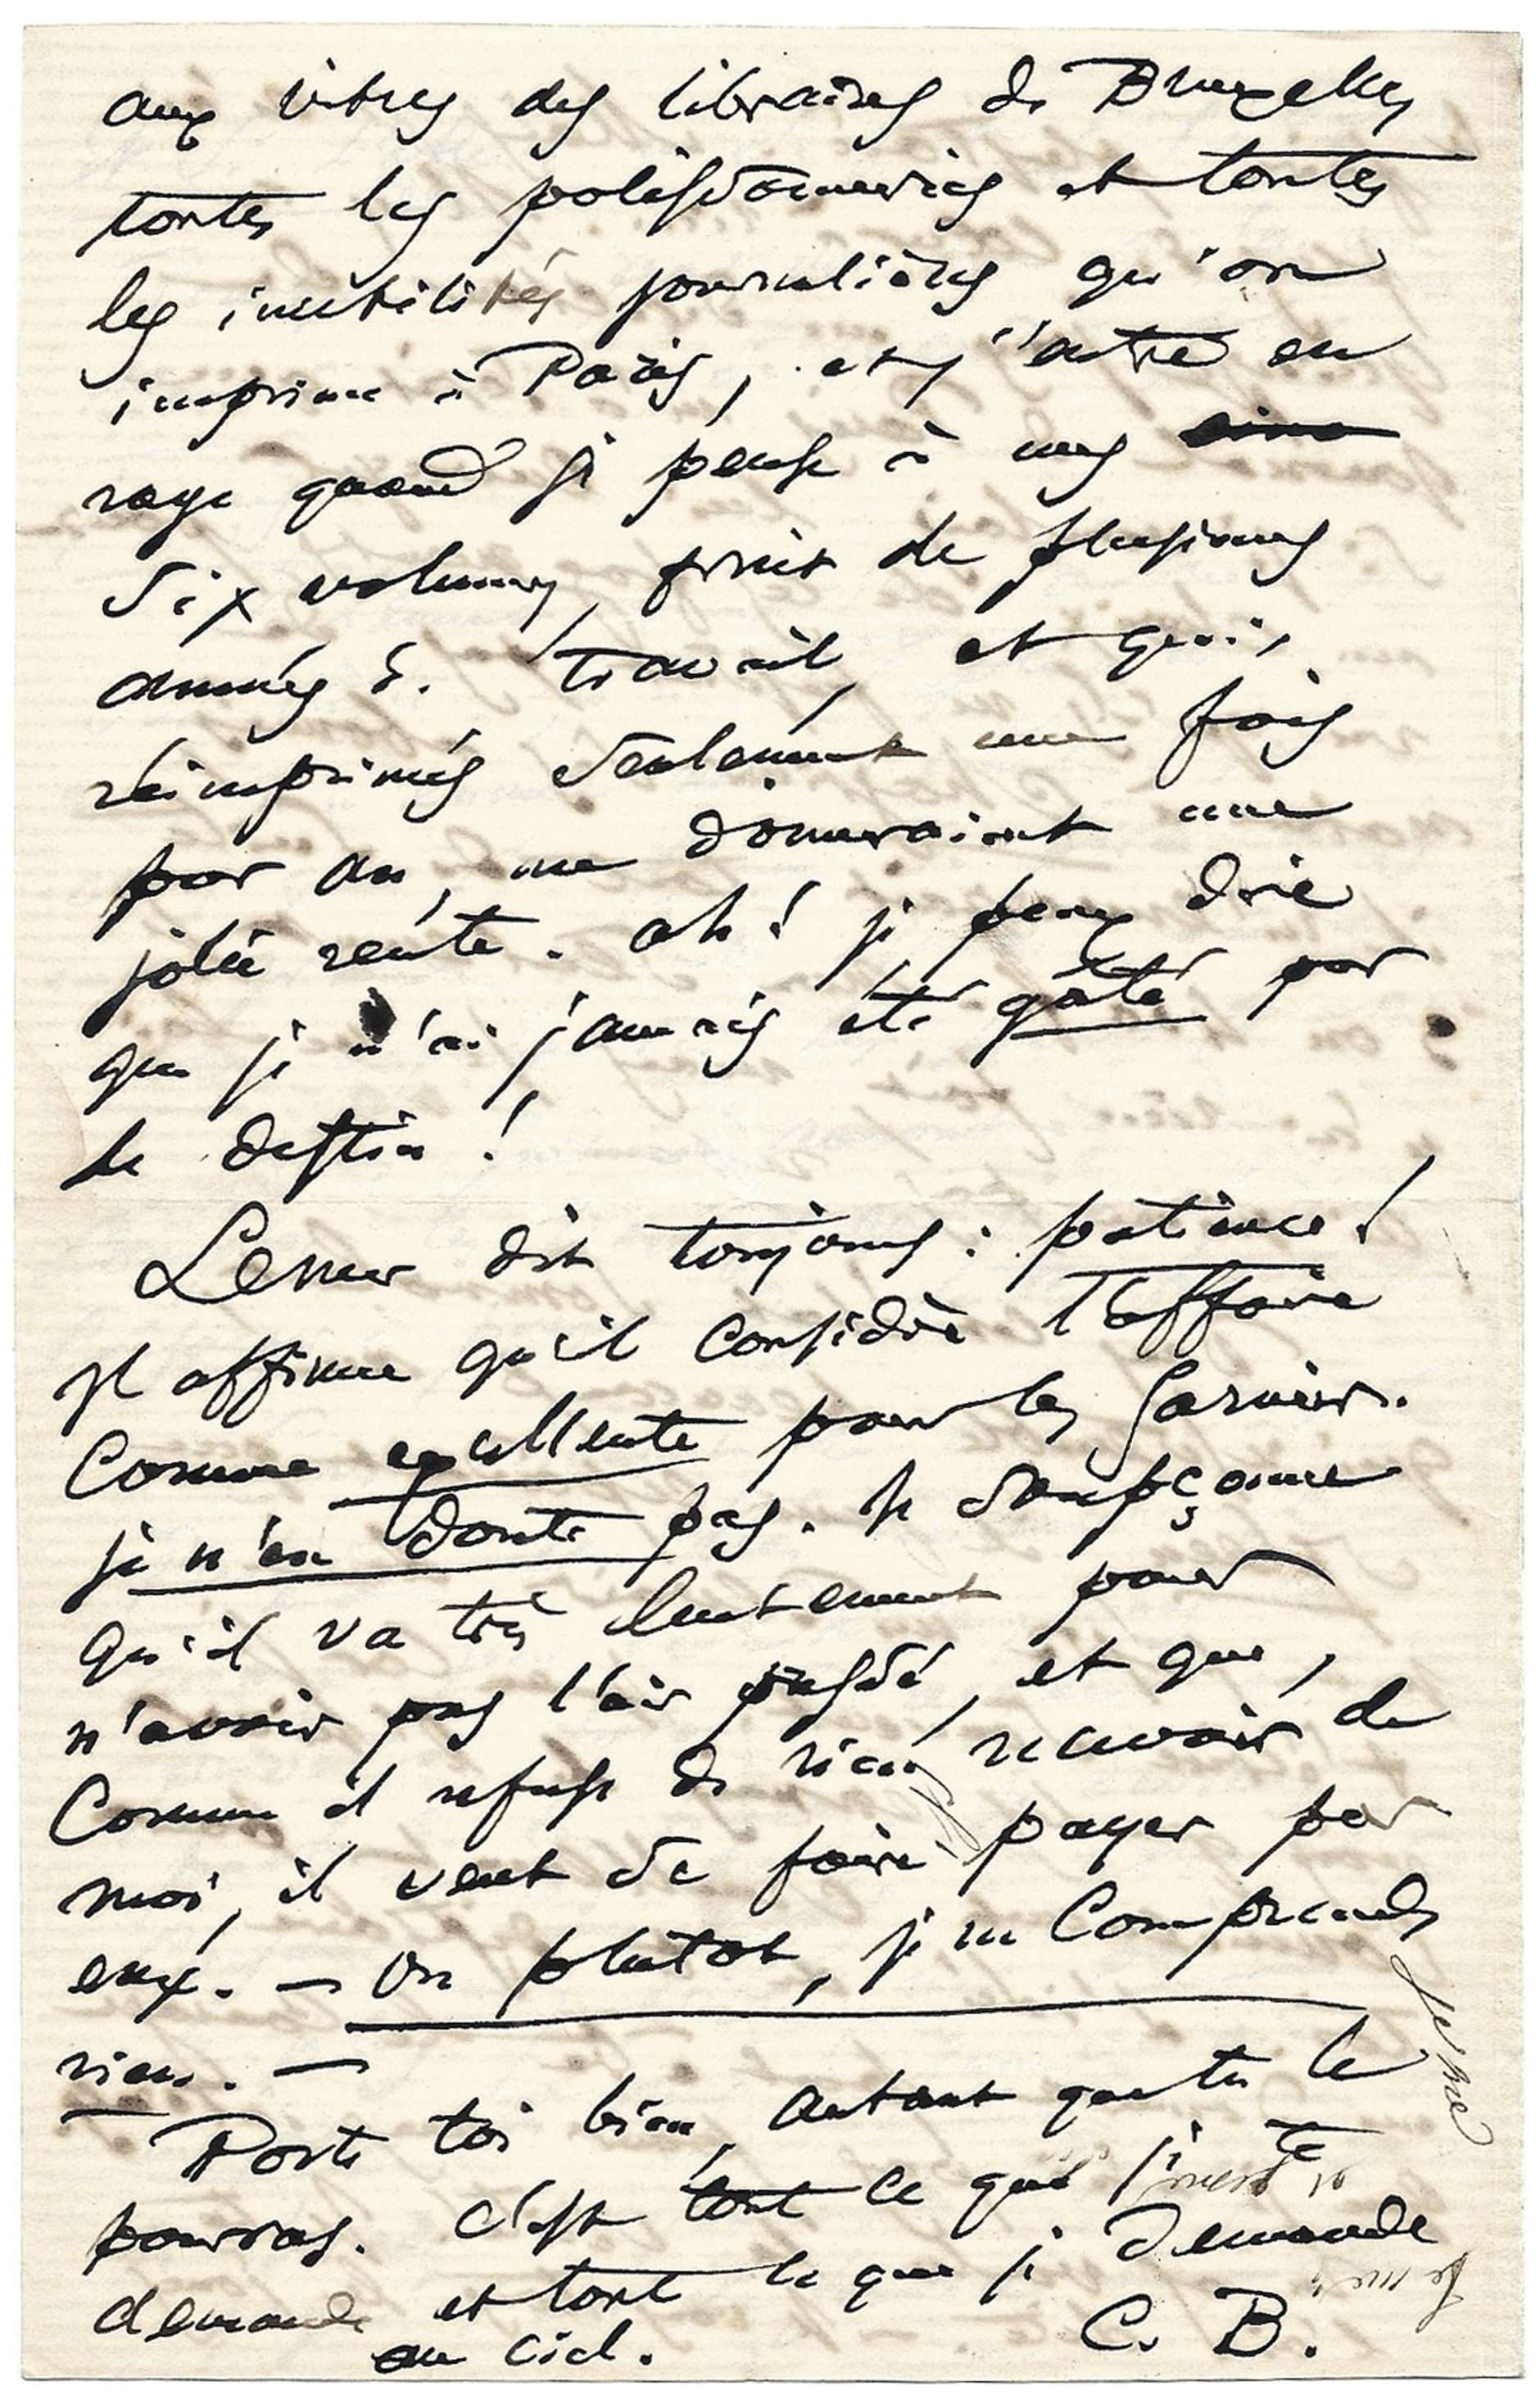 aux vitres des libraires de Bruxelles
toutes les polissonneries et toutes
les inutilités journalières qu'on
imprime à Paris, et j'entre en
rage quand je pense à mes
six volumes, fruit de plusieurs
années de travail, et qui,
réimprimés seulement une fois
par an, me donneraient une
jolie rente. ah! je peux dire
que je n'ai jamais été gâté par
le destin!
Lemer dit toujours: patience!
Il affirme qu'il considère l'affaire
comme excellente pour les Garnier.
je n'en doute pas. Je soupçonne
qu'il va très lentement pour
n'avoir pas l'air pressé, et que,
comme il refuse de rien recevoir de
moi, il veut se faire payer par
eux. — Ou plutôt, je ne comprends
rien. —
Porte toi bien, autant que tu le
pourras. C'est tout ce que je te
demande et tout ce que je demande
au ciel.
C. B.